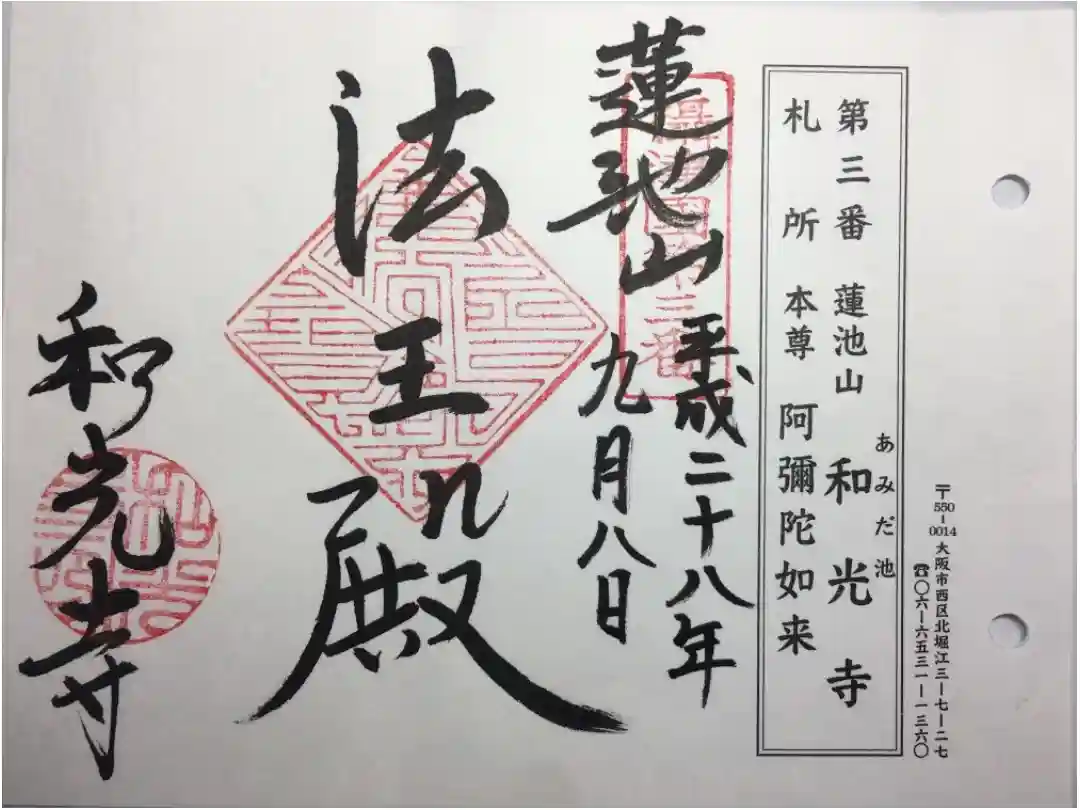 〒550-0014 大阪市西区北堀江三ー七ー二七
☎〇六ー六五三一ー一三六〇
あみだ池
第三番 蓮池山 和光寺
札所本尊 阿彌陀如来
蓮池山
平成二十八年
九月八日
法王殿
和光寺